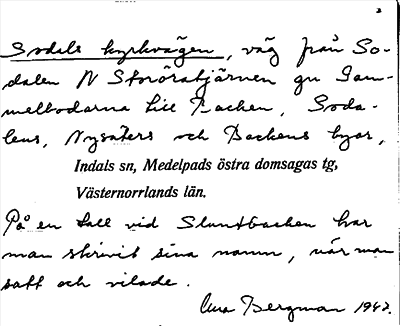 Sodals kyrkvägen, väg från So-
dalen N Storöratjärnen gn Gam-
melbodarna till Backen, Soda-
lens, Nysäters och Backens byar,
Indals sn, Medelpads östra domsagas tg,
Västernorrlands län.
På en tall vid Sluntbacken har
man skrivit sina namn, när man
satt och vilade.
Bergman 1947.